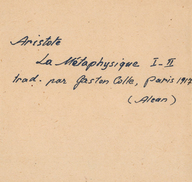 Aristote
La Métaphysique I-II
trad. par Gaston Colle, Paris 1912
(Alcan)